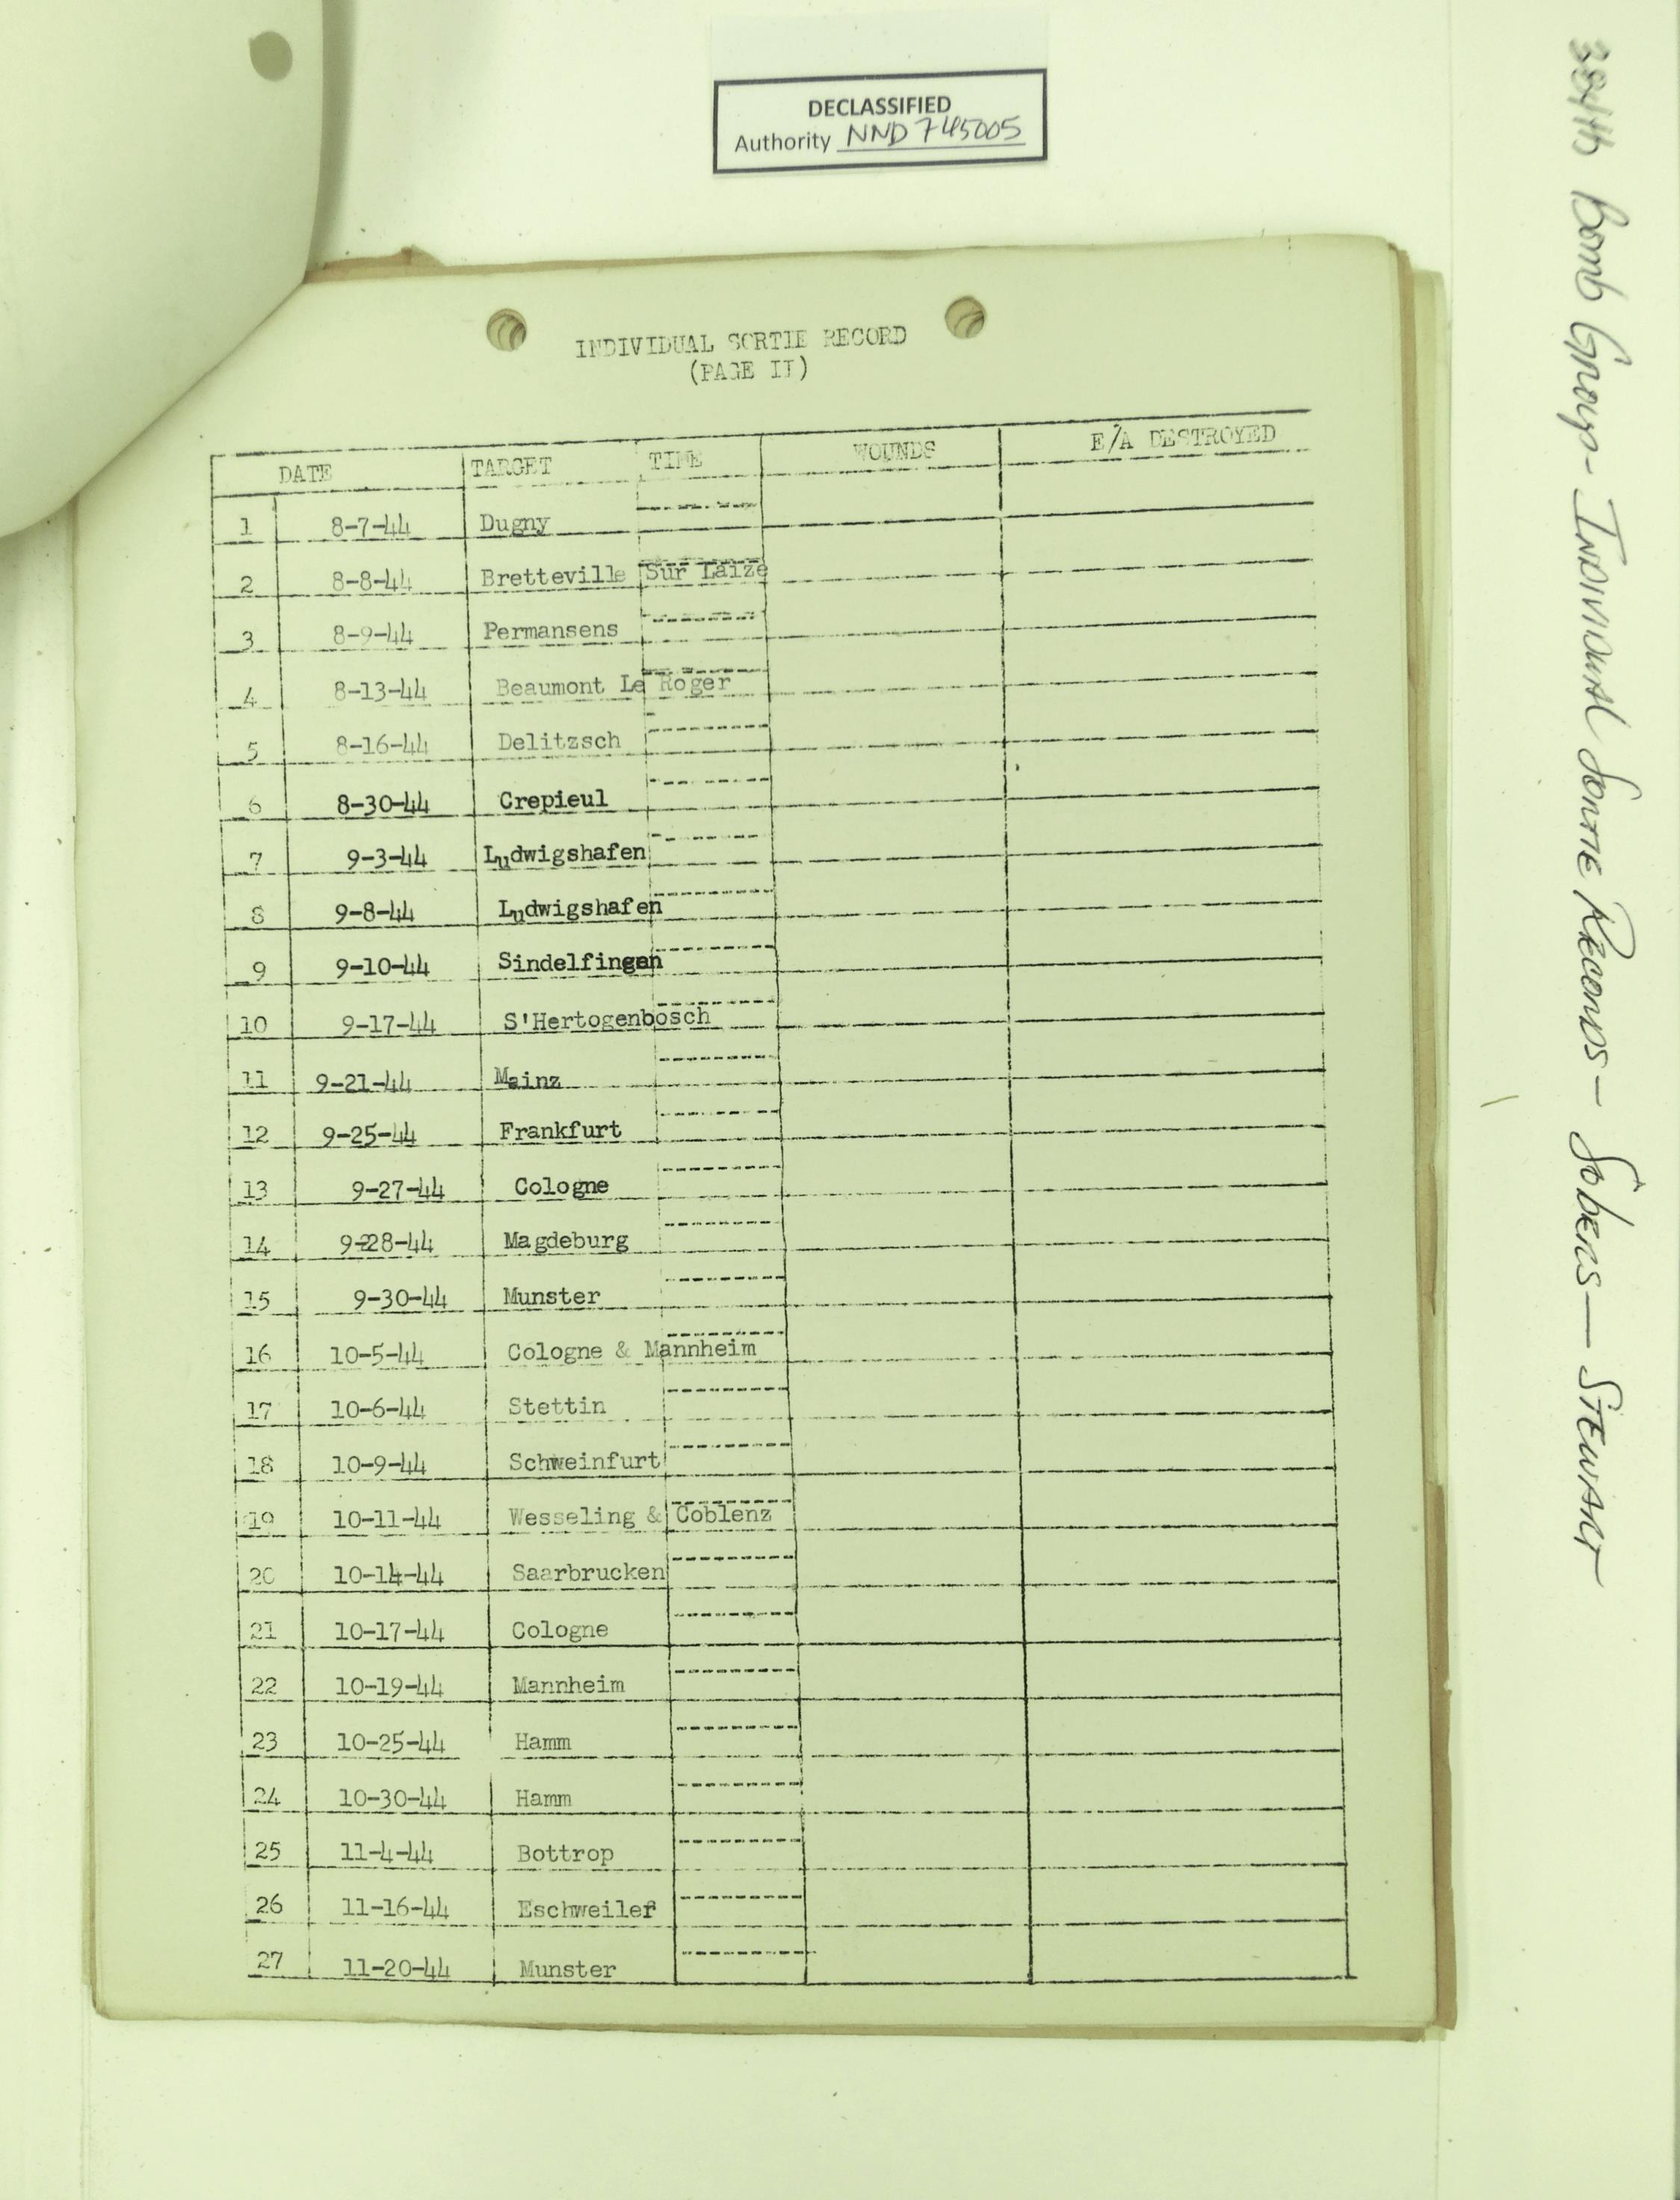 DECLASSIFIED
Authority NND 745005
384th Bomb Group - Individual Sortie Records - Sobers - Stewart
INDIVIDUAL SORTIE RECORD
(PAGE II)
DATE TARGET TIME WOUNDS E/A DESTROYED
1 8-7-44 Dugny
2 8-8-44 Bretteville Sur Laize
3 8-9-44 Permansens
4 8-13-44 Beaumont Le Roger
5 8-16-44 Delitzsch
6 8-30-44 Crepieul
7 9-3-44 Ludwigshafen
8 9-8-44 Ludwigshafen
9 9-10-44 Sindelfingen
10 9-17-44 S'Hertogenbosch
11 9-21-44 Mainz
12 9-25-44 Frankfurt
13 9-27-44 Cologne
14 9-28-44 Magdeburg
15 9-30-44 Munster
16 10-5-44 Cologne & Mannheim
17 10-6-44 Stettin
18 10-9-44 Schweinfurt
19 10-11-44 Wesseling & Coblenz
20 10-14-44 Saarbrucken
21 10-17-44 Cologne
22 10-19-44 Mannheim
23 10-25-44 Hamm
24 10-30-44 Hamm
25 11-4-44 Bottrop
26 11-16-44 Eschweiler
27 11-20-44 Munster